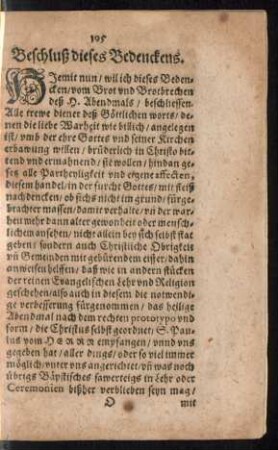 195
Beschluß dieses Bedenckens.
HIemit nun / wil ich dieses Beden-
cken / vom Brot vnd Brotbrechen
deß H. Abendmals / beschliessen.
Alle trewe diener deß Göttlichen worts / de-
nen die liebe Warheit wie billich / angelegen
ist / vmb der ehre Gottes vnd seiner Kirchen
erbawung willen / brüderlich in Christo bit-
tend vnd ermahnend / sie wollen / hindan ge-
setzt alle Partheyligkeit vnd eigene affecten,
diesem handel / in der furcht Gottes / mit fleiß
nachdencken / ob sichs nicht im grund / fürge-
brachter massen / damit verhalte / vñ der war-
heit mehr dann alter gewonheit oder mensch-
lichem ansehen / nicht allein bey sich selbst stat
geben / sondern auch Christliche Obrigkeit
vñ Gemeinden mit gebürendem eiffer / dahin
anweisen helffen / daß wie in andern stücken
der reinen Evangelischen lehr vnd Religion
geschehen / also auch in diesem die notwendi-
ge verbesserung fürgenommen / das heilige
Abendmal nach dem rechten prototypo vnd
form / die Christus selbst geordnet / S. Pau-
lus vom HERRN empfangen / vnnd vns
gegeben hat / aller dings / oder so viel immer
möglich / vnter vns angerichtet / vñ was noch
übrigs Bäpstisches sawerteigs in lehr oder
Ceremonien bißher verblieben seyn mag /
O mit